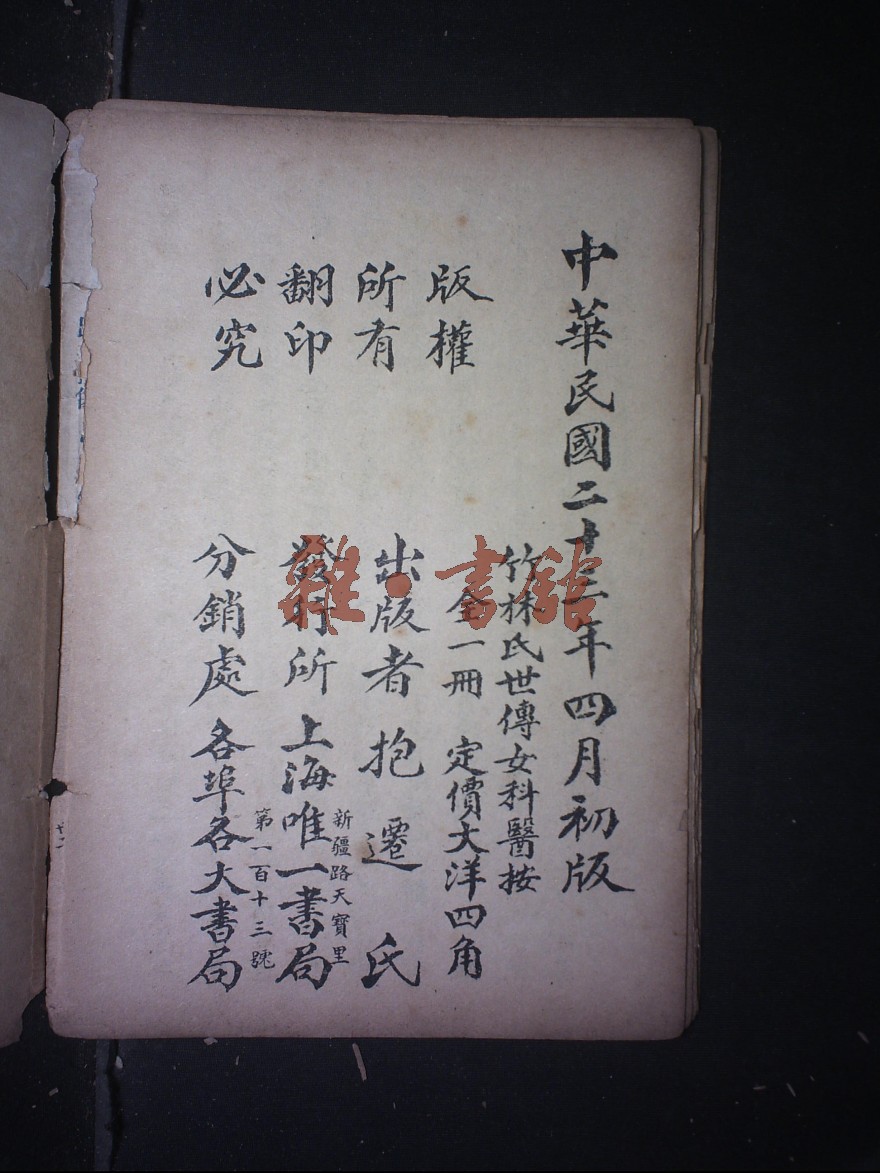 中華民國二十三年四月初版
竹林氏世傳女科醫按
全一冊　定價大洋四角
版權
所有
翻印
必究
出版者　抱遷氏
發行所　上海唯一書局
新疆路天寶里
第一百十三號
分銷處　各埠各大書局
雜·書館